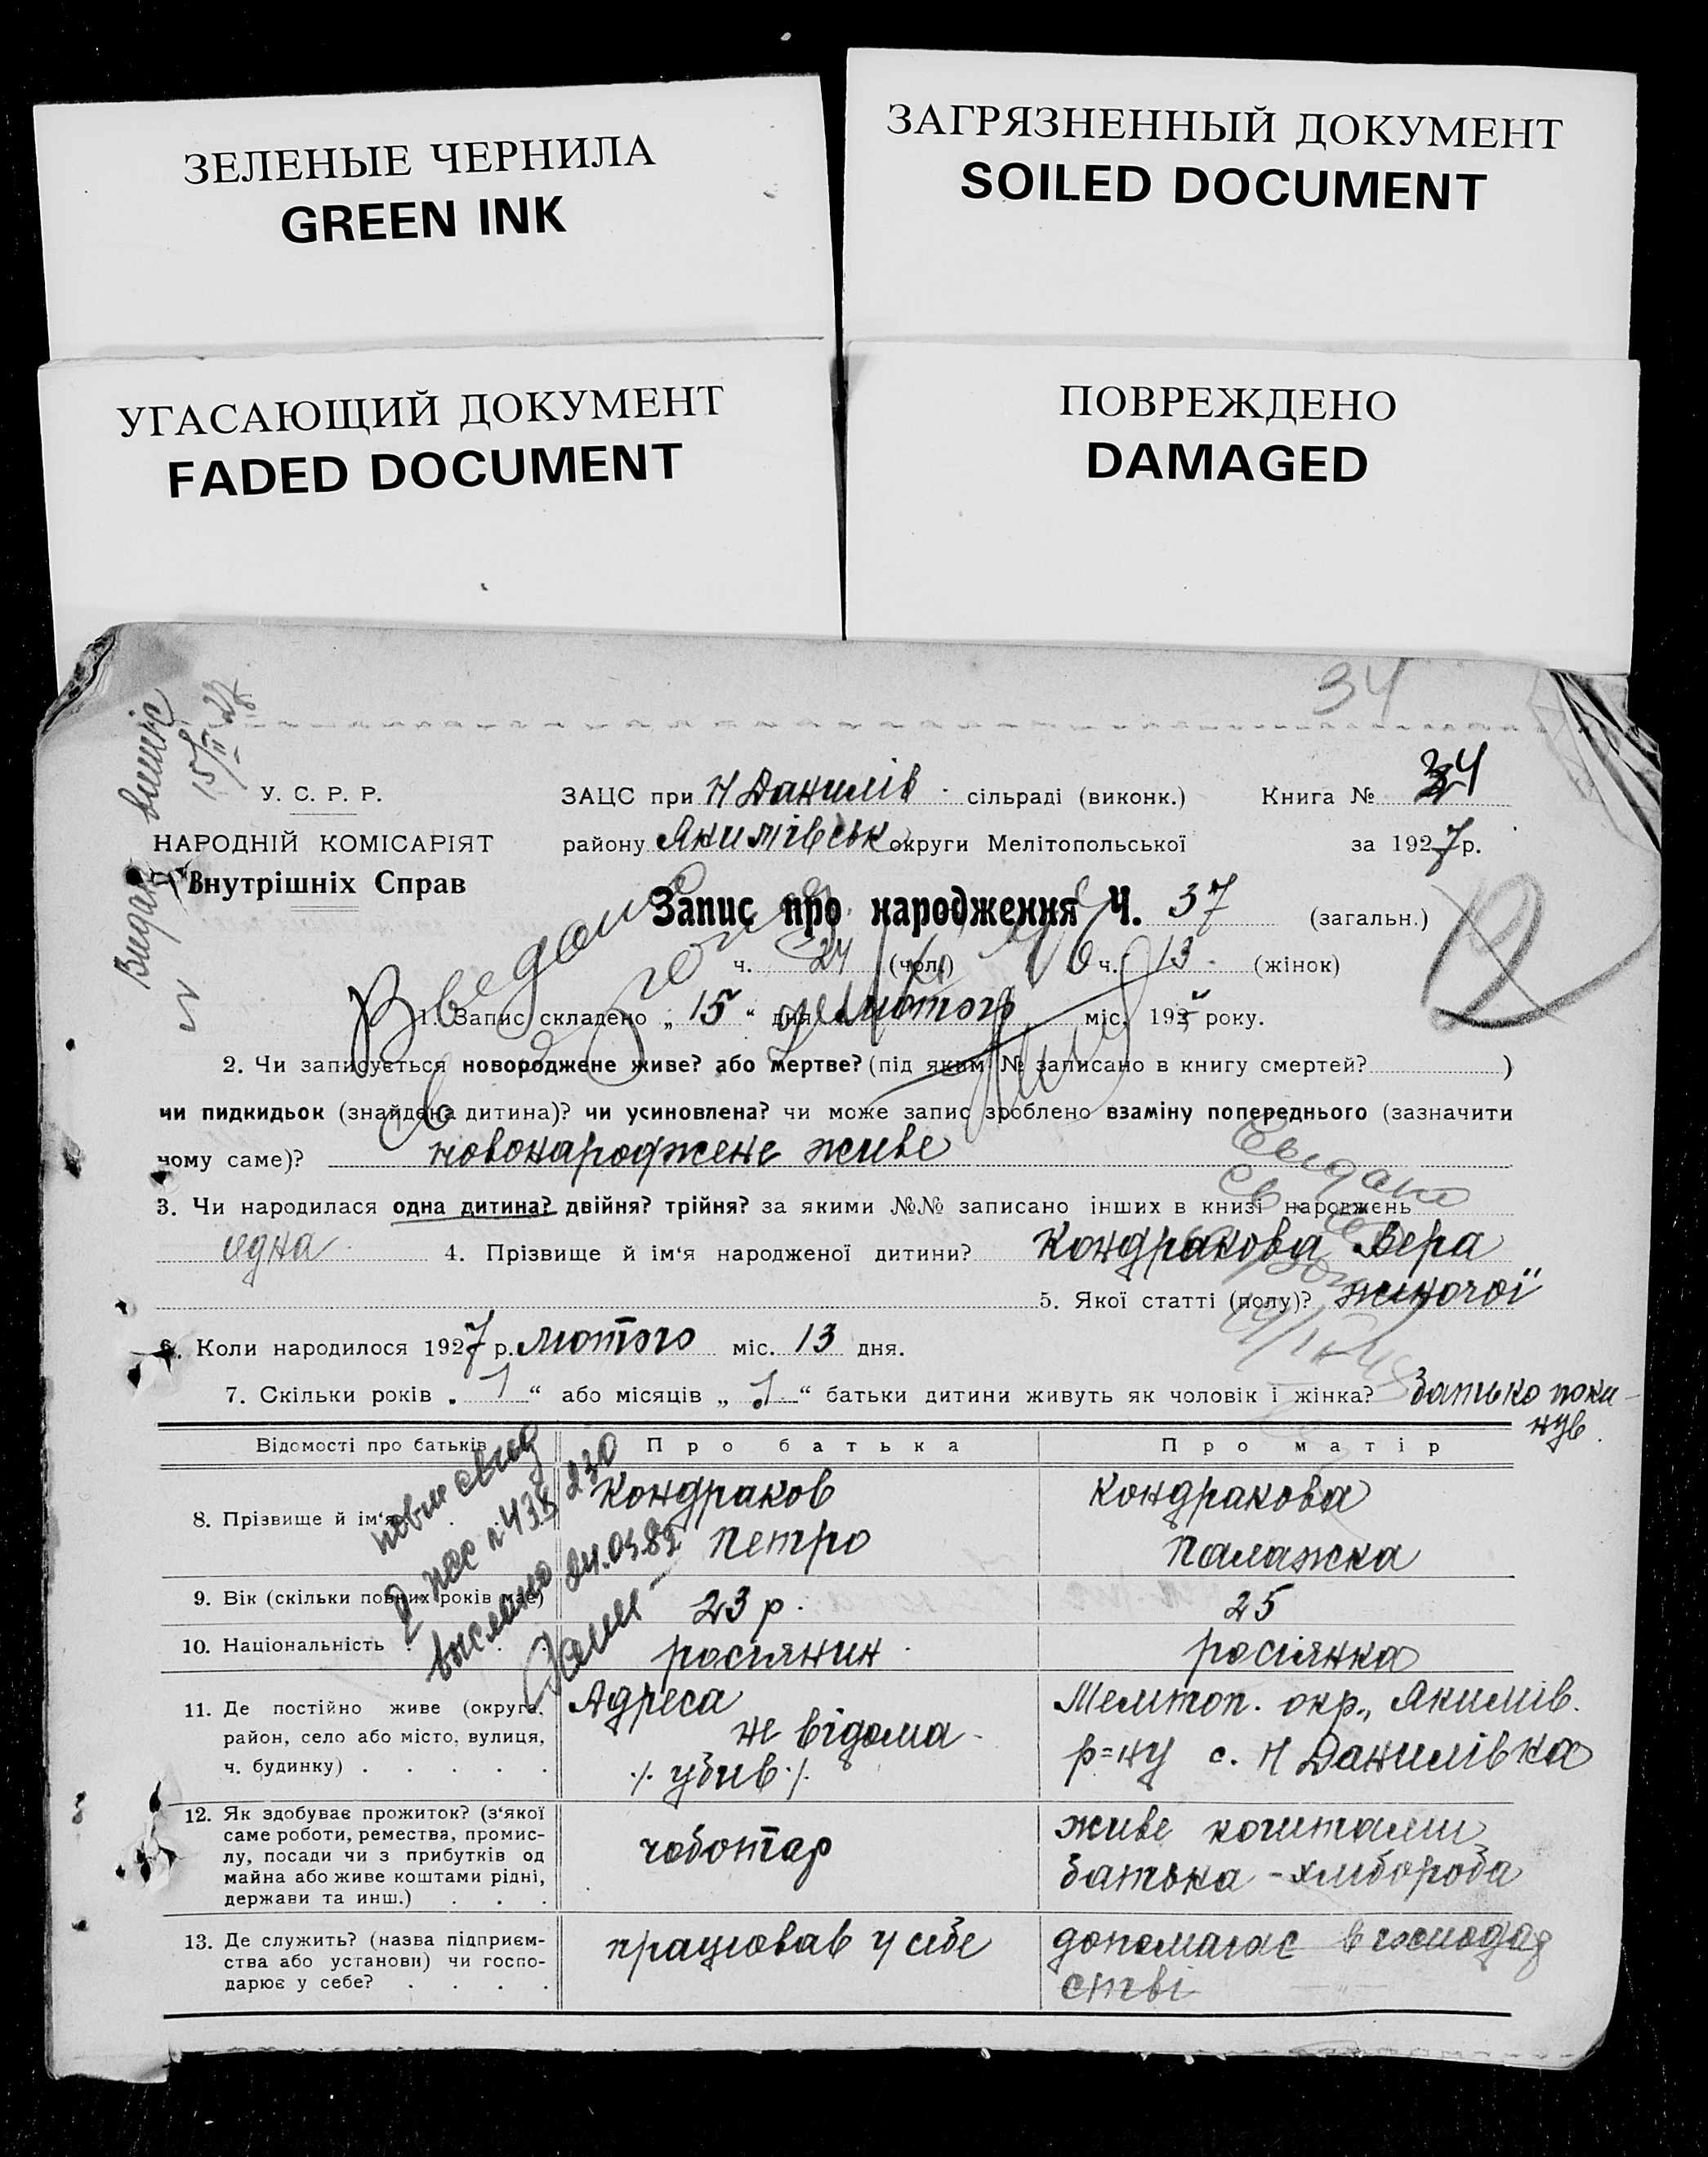 ЗЕЛЕНЫЕ ЧЕРНИЛА
GREEN INK
ЗАГРЯЗНЕННЫЙ ДОКУМЕНТ
SOILED DOCUMENT
УГАСАЮЩИЙ ДОКУМЕНТ
FADED DOCUMENT
ПОВРЕЖДЕНО
DAMAGED
34
У. С. Р. Р.
НАРОДНІЙ КОМІСАРІЯТ
Внутрішніх Справ
ЗАЦС при Н Данилів сільраді (виконк.) Книга № 34
району Якимівськ округи Мелітопольської за 1927 р.
Запис про народження Ч. 37 (загальн.)
ч. 24 (чол.) ч. 13 (жінок)
1. Запис складено „15“ дня лютого міс. 192 року.
2. Чи записується новороджене живе? або мертве? (під яким № записано в книгу смертей? )
чи пидкидьок (знайдена дитина)? чи усиновлена? чи може запис зроблено взаміну попереднього (зазначити
чому саме)? новонароджене живе
3. Чи народилася одна дитина? двійня? трійня? за якими №№ записано інших в книзі народжень
одна 4. Прізвище й ім'я народженої дитини? Кондракова Вера
5. Якої статті (полу)? жіночої
6. Коли народилося 1927 р. лютого міс. 13 дня.
7. Скільки років „1“ або місяців „ “ батьки дитини живуть як чоловік і жінка? батько поки-
нув.
Відомості про батьків Про батька Про матір
8. Прізвище й ім'я Кондраков Петро Кондракова Палажка
9. Вік (скільки повних років має) 23 р. 25
10. Національність росіянин росіянка
11. Де постійно живе (округа, район, село або місто, вулиця, ч. будинку) Адреса не відома
Мелітоп. окр., Якимів. р=ну с. Н Данилівка
12. Як здобуває прожиток? (з'якої саме роботи, ремества, промислу, посади чи з прибутків од майна або живе коштами рідні, держави та инш.) чоботар
живе коштами батька - хлібороба
13. Де служить? (назва підприємства або установи) чи господарює у себе? працював у себе
допомагає в господарстві